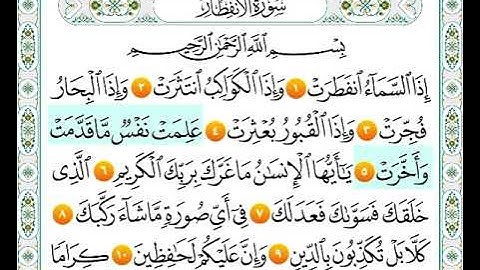 سُورَةُ الْانفِطَار
بِسْمِ اللَّهِ الرَّحْمَٰنِ الرَّحِيمِ
إِذَا السَّمَاءُ انفَطَرَتْ ١ وَإِذَا الْكَوَاكِبُ انتَثَرَتْ ٢ وَإِذَا الْبِحَارُ
فُجِّرَتْ ٣ وَإِذَا الْقُبُورُ بُعْثِرَتْ ٤ عَلِمَتْ نَفْسٌ مَّا قَدَّمَتْ
وَأَخَّرَتْ ٥ يَا أَيُّهَا الْإِنسَانُ مَا غَرَّكَ بِرَبِّكَ الْكَرِيمِ ٦ الَّذِي
خَلَقَكَ فَسَوَّاكَ فَعَدَلَكَ ٧ فِي أَيِّ صُورَةٍ مَّا شَاءَ رَكَّبَكَ ٨
كَلَّا بَلْ تُكَذِّبُونَ بِالدِّينِ ٩ وَإِنَّ عَلَيْكُمْ لَحَافِظِينَ ١٠ كِرَامًا